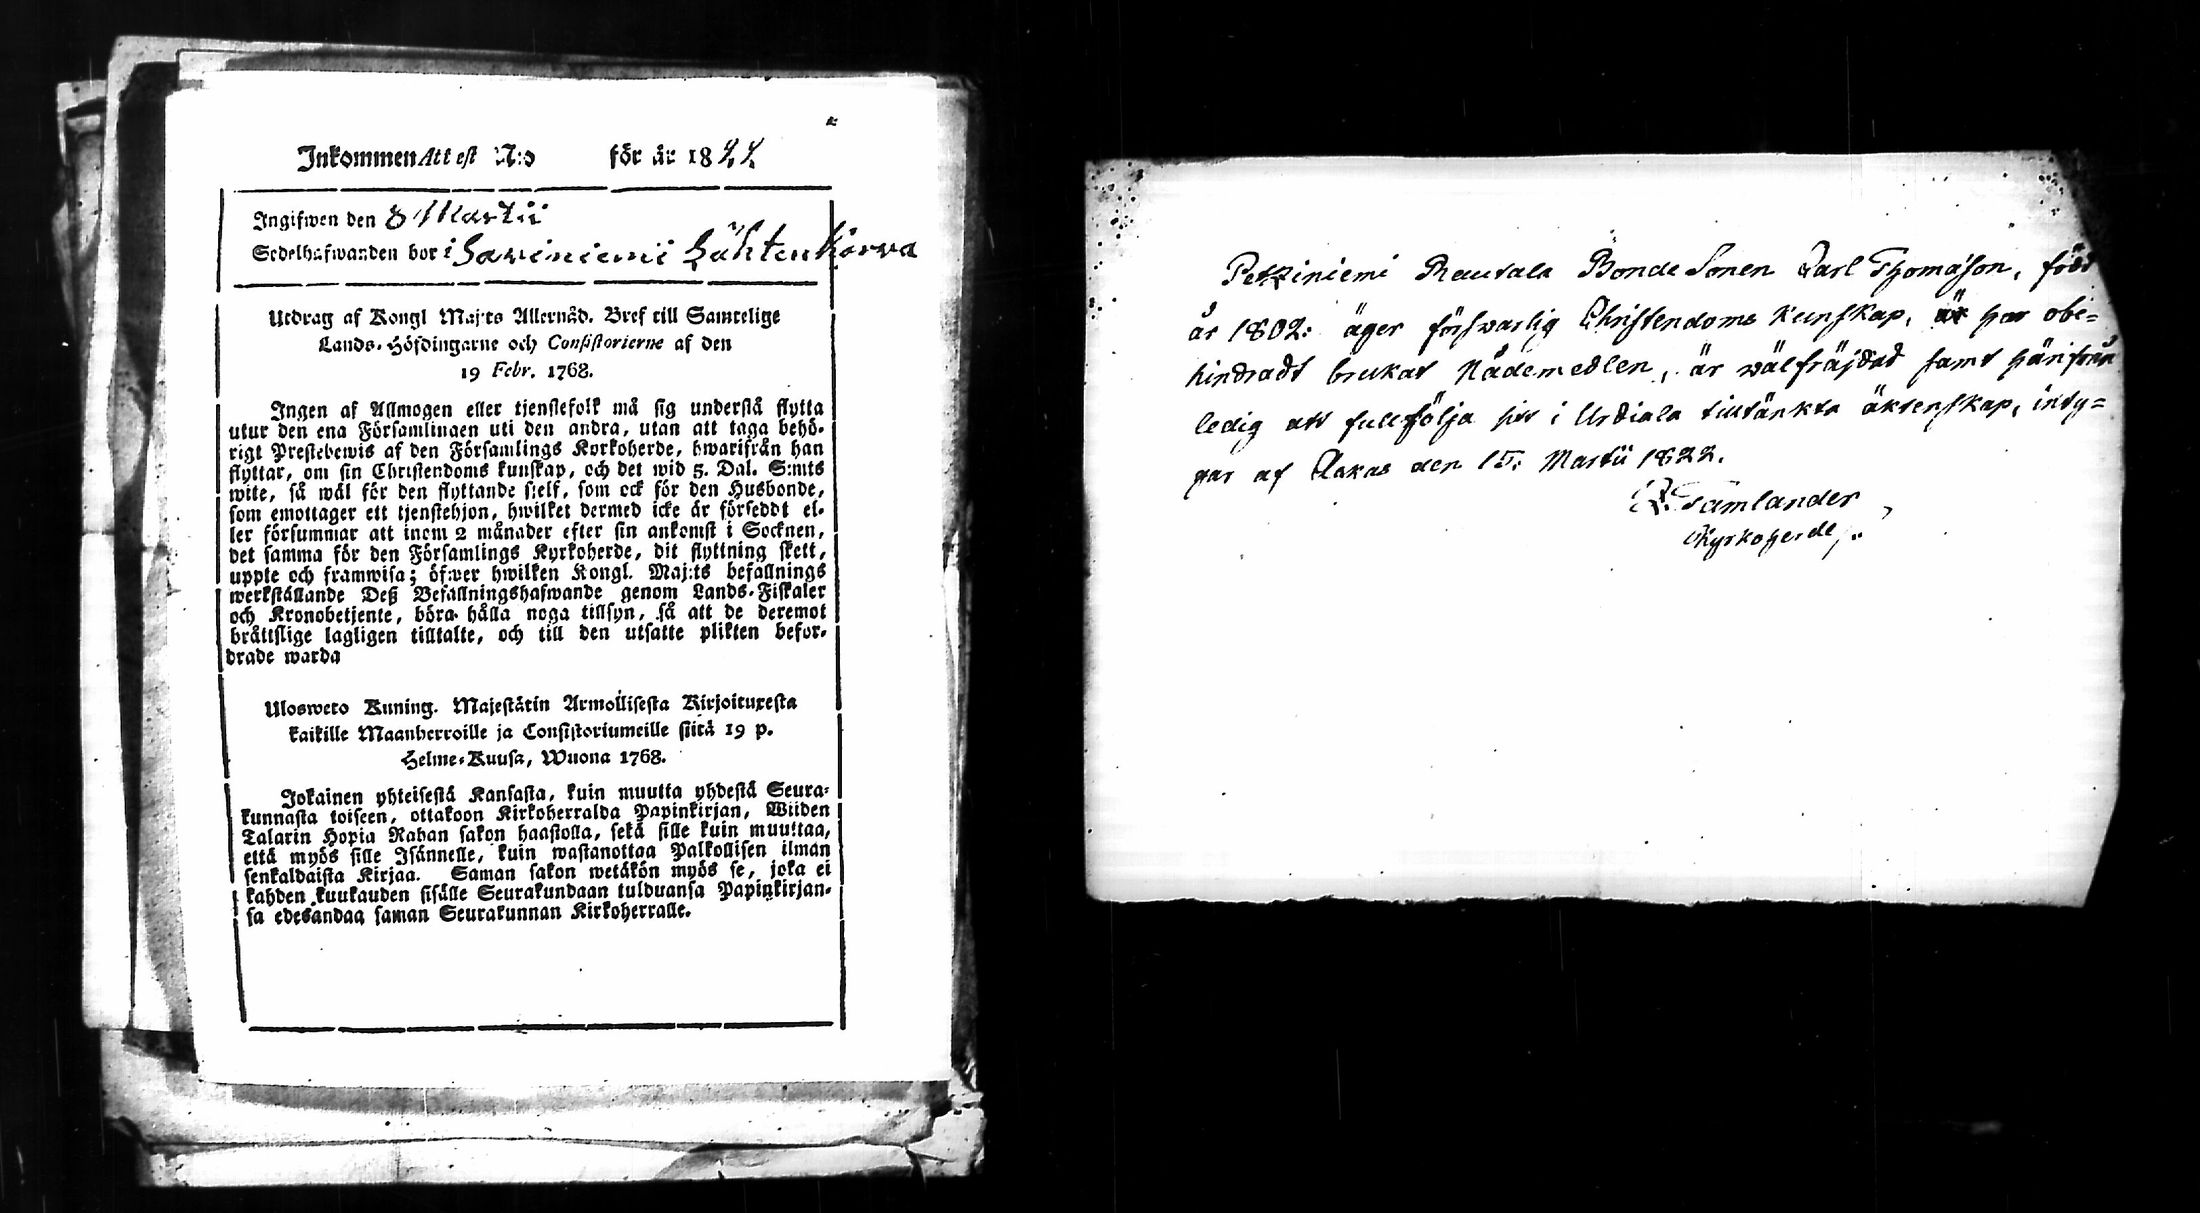 Inkommen Attest N:o för år 1822
Ingifwen den 8 Martii
Sedelhafwanden bor i Saviniemi Lähteenkorva
Utdrag af Kongl Maj:ts Allernåd. Bref till Samtelige
Lands-Höfdingarne och Consistorierne af den
19 Febr. 1768.
Ingen af Allmogen eller tjenstefolk må sig understå flytta
utur den ena Församlingen uti den andra, utan att taga behö-
rigt Prestebewis af den Församlings Kyrkoherde, hwarifrån han
flyttar, om sin Christendoms kunskap, och det wid 5. Dal. S:mts
wite, så wäl för den flyttande sielf, som ock för den Husbonde,
som emottager ett tjenstehjon, hwilket dermed icke är förseddt el-
ler försummar att inom 2 månader efter sin ankomst i Socknen,
det samma för den Församlings Kyrkoherde, dit flyttning skett,
uppte och framwisa; öfwer hwilken Kongl. Maj:ts befallnings
werkställande Deß Befallningshafwande genom Lands-Fiskaler
och Kronobetjente, böra hålla noga tillsyn, så att de deremot
bråttslige lagligen tilltalte, och till den utsatte plikten befor-
drade warda
Ulosweto Kuning. Majestätin Armollisesta Kirjoituxesta
kaikille Maanherroille ja Consistoriumeille siitä 19 p.
Helme-Kuusa, Wuona 1768.
Jokainen yhteisestä Kansasta, kuin muutta yhdestä Seura-
kunnasta toiseen, ottakoon Kirkoherralda Papinkirjan, Wiiden
Talarin Hopia Rahan sakon haastolla, sekä sille kuin muuttaa,
että myös sille Isännelle, kuin wastanottaa Palkollisen ilman
senkaldaista Kirjaa. Saman sakon wetäkön myös se, joka ei
kahden kuukauden sisälle Seurakundaan tulduansa Papinkirjan-
sa edesandaa saman Seurakunnan Kirkoherralle.
Petziniemi Rautala Bonde Sonen Carl Thomasson, född
år 1802: äger försvarlig Christendoms kunskap, har obe=
hindradt brukat Nådemedlen, är wälfräjdad samt härifrån
ledig att fullfölja sitt i Urdiala tilltänkta äktenskap, inty=
gar af Akas den 15: Martii 1822.
Tamlander
Kyrkoherde